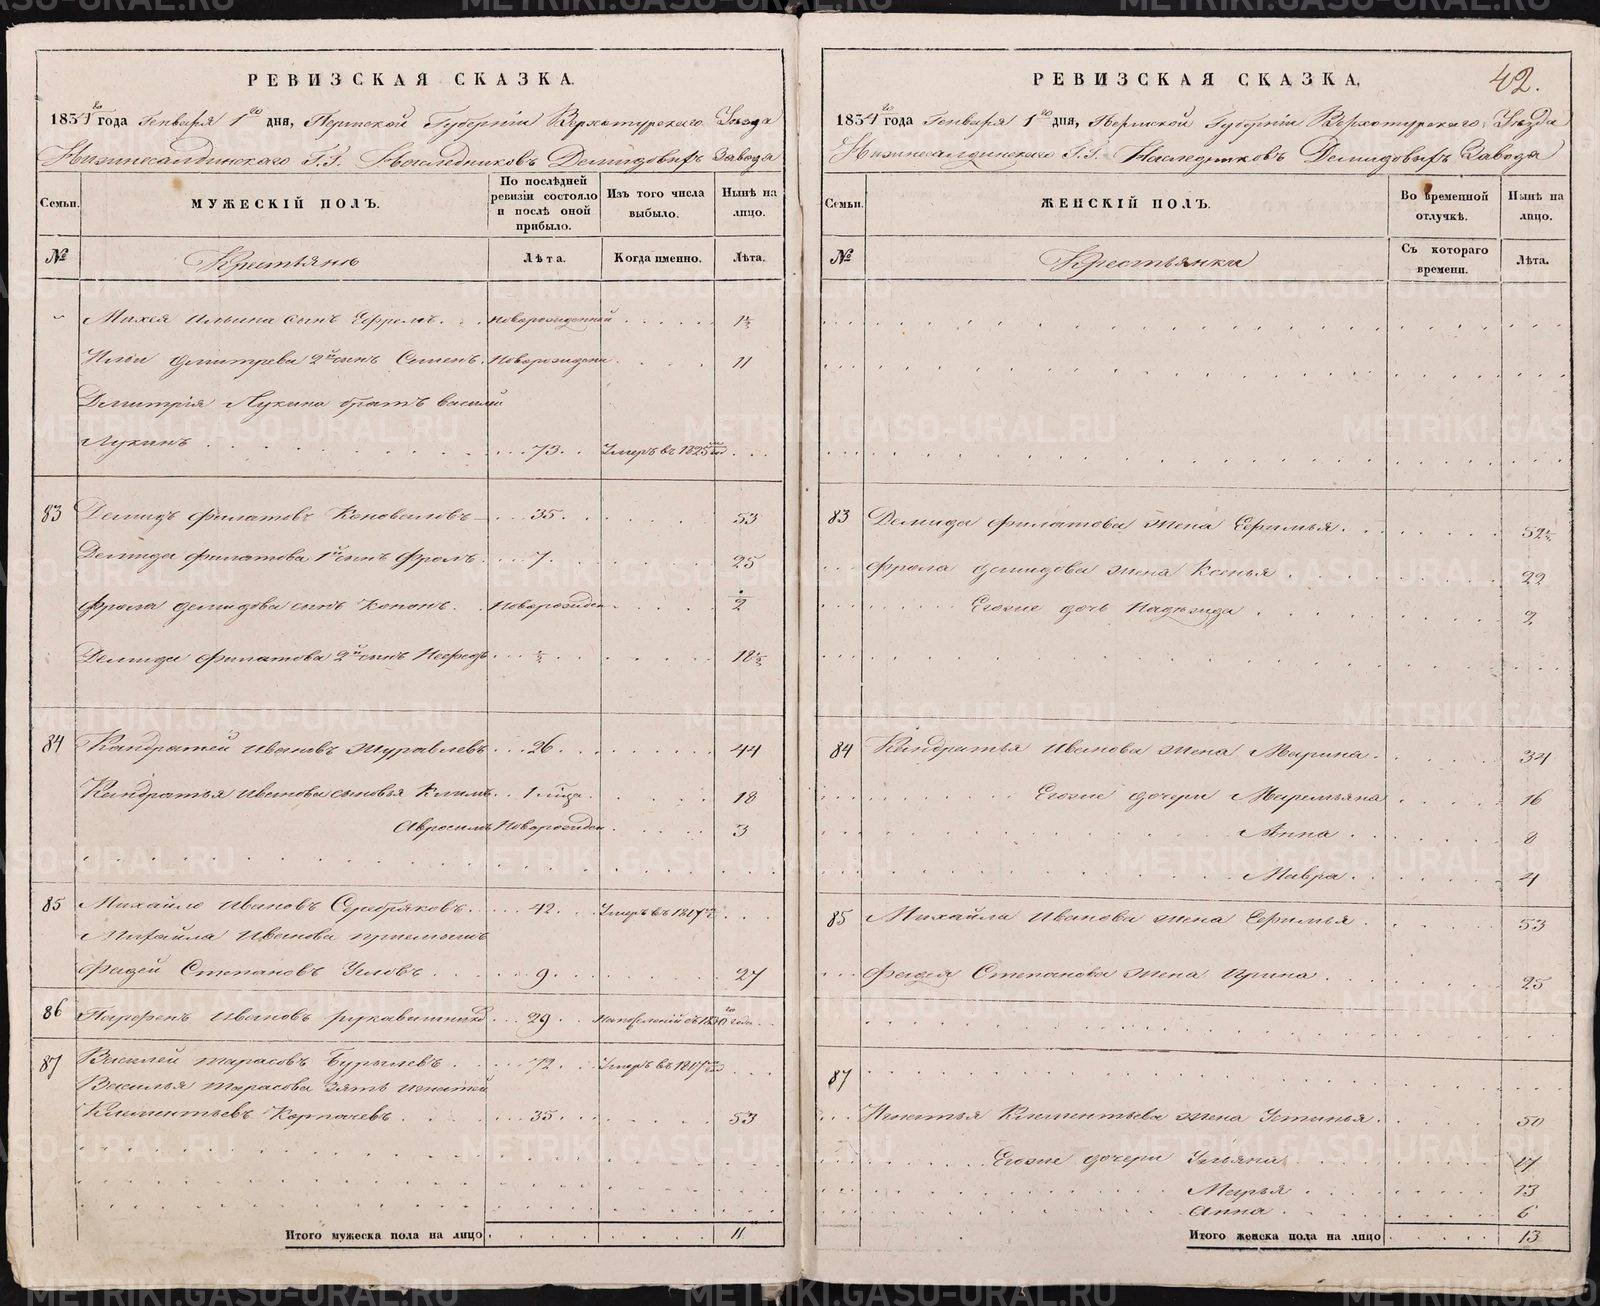 РЕВИЗСКАЯ СКАЗКА.
1834го года Генваря 1го дня, Пермской Губерніи Верхотурскаго Уезда
Нижнесалдинскаго Г.Г. Наследниковъ Демидовыхъ Завода
Семьи.
МУЖЕСКІЙ ПОЛЪ.
По послѣдней ревизіи состояло и послѣ оной прибыло.
Изъ того числа выбыло.
Нынѣ на лицо.
№
Крестьянъ
Лѣта.
Когда именно.
Лѣта.
Михея Ильина сынъ Ефремъ новорожденной 1½
Ильи Дмитрева 2й сынъ Семенъ Новорожден 11
Дмитрія Лукина братъ Василей
Лукинъ 73 Умеръ въ 1825м
83 Демидъ Филатовъ Коноваловъ 35 53
Демида Филатова 1й сынъ Фролъ 7 25
Фрола Демидова сынъ Кононъ Новорожден 2
Демида Филатова 2й сынъ Нефедъ ½ 18½
84 Кандратей Ивановъ Журавлевъ 26 44
Кандратья Иванова сыновья Климъ 1 18
Авросимъ Новорожден 3
85 Михайло Ивановъ Серебряковъ 42 Умеръ въ 1817м
Михайла Иванова приемышъ
Фадей Степановъ Условъ 9 27
86 Парфенъ Ивановъ 29
87 Василей Тарасовъ Бурылевъ 72 Умеръ въ 1817м
Василья Тарасова зять Игнатей
Климентьевъ Корпачевъ 35 53
Итого мужеска пола на лицо 11
РЕВИЗСКАЯ СКАЗКА.
42.
1834го года Генваря 1го дня, Пермской Губерніи Верхотурскаго Уезда
Нижнесалдинскаго Г.Г. Наследниковъ Демидовыхъ Завода
Семьи.
ЖЕНСКІЙ ПОЛЪ.
Во временной отлучкѣ.
Нынѣ на лицо.
№
Крестьянки
Съ котораго времени.
Лѣта.
83 Демида Филатова жена Ефимья 52½
Фрола Демидова жена Ксенья 22
Егоже дочь Надежда 2
84 Кандратья Иванова жена Марина 34
Егоже дочери Маремьяна 16
Анна 8
Мавра 4
85 Михайла Иванова жена Ефимья 53
Фадея Степанова жена Ирина 25
87
Игнатья Климентьева жена Устинья 50
Егоже дочери Ульяна 17
Марья 13
Анна 6
Итого женска пола на лицо 13
METRIKI.GASO-URAL.RU